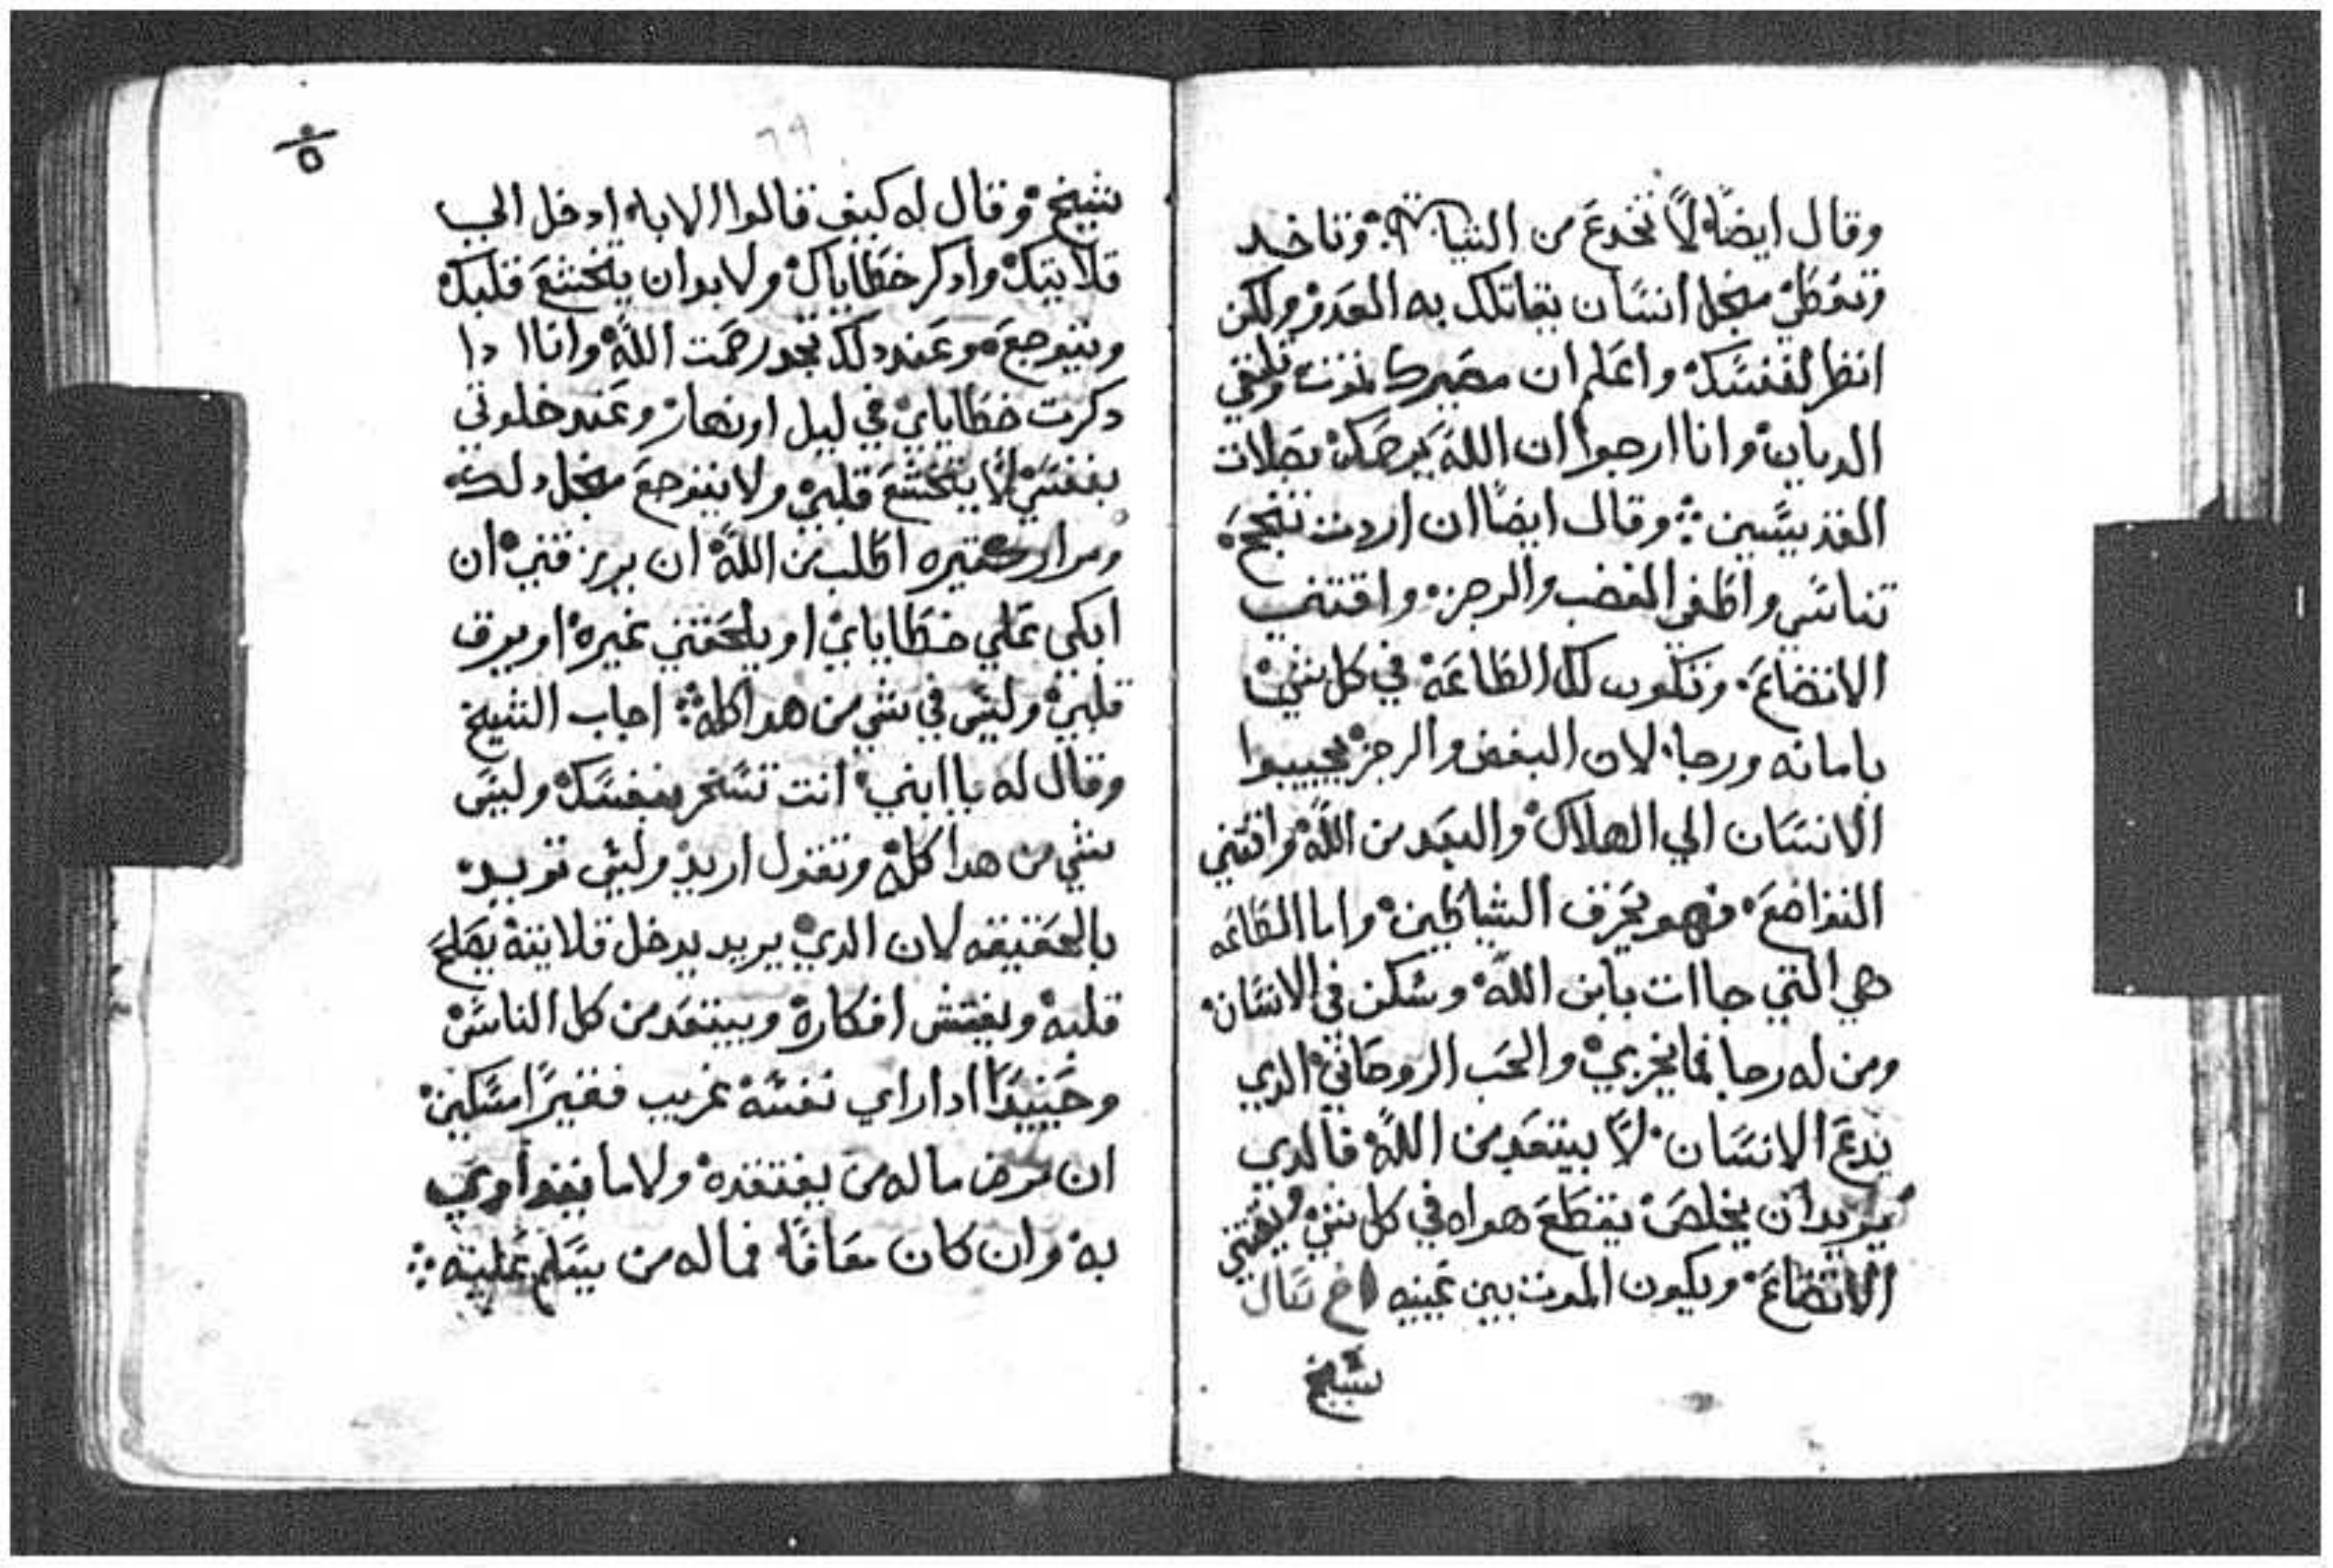 وقال ايضاً لا تخدع من الشياطين وتاخد
وتعطي من اجل انسان يقاتلك به العدو ولكن
انظر لنفسك واعلم ان مصيرك تموت وتلقي
الديان وانا ارجوا ان الله يرحمك بصلات
القديسين ⁘ وقال ايضا ان اردت تنجح
تناسي واطفي الغضب والرجز واقتني
الاتضاع وتكون لك الطاعة في كل شي
بامانه ورجا لان البغض والرجز يجيبوا
الانسان الي الهلاك والبعد من الله واقتني
التواضع فهو يحرق الشياطين واما الطاعه
هي التي جاات بابن الله وسكن في الانسان
ومن له رجا فما يخزي والحب الروحاني الدي
يدع الانسان لا يبتعد من الله فالدي
يريد ان يخلص يقطع هواه في كل شي ويقتني
الاتضاع ويكون الموت بين عينيه اخ سال
شيخ
٥
٦٩
شيخ وقال له كيف قالوا الابا ادخل الي
قلايتك وادكر خطاياك ولا بد ان يتخشع قلبك
ويتوجع وعند دلك تجد رحمت الله وانا ادا
دكرت خطاياي في ليل او نهار وعند خلوتي
بنفسي لا يتخشع قلبي ولا يتوجع من اجل دلك
ومرار كتيره اطلب من الله ان يرزقني ان
ابكي علي خطاياي او يلحقني غيره او يرق
قلبي وليس في شي من هدا كله ⁘ اجاب الشيخ
وقال له يا ابني انت تسخر بنفسك وليس
شي من هدا كله وتقول اريد وليس تريد
بالحقيقه لان الدي يريد يدخل قلايته يصلح
قلبه ويفتش افكاره ويبتعد من كل الناس
وحينيداً ادا راي نفسه غريب فقيراً مسكين
ان مرض ما له من يفتقده ولا ما يتداوي
به وان كان معافا فما له من يسلم عليه ⁘